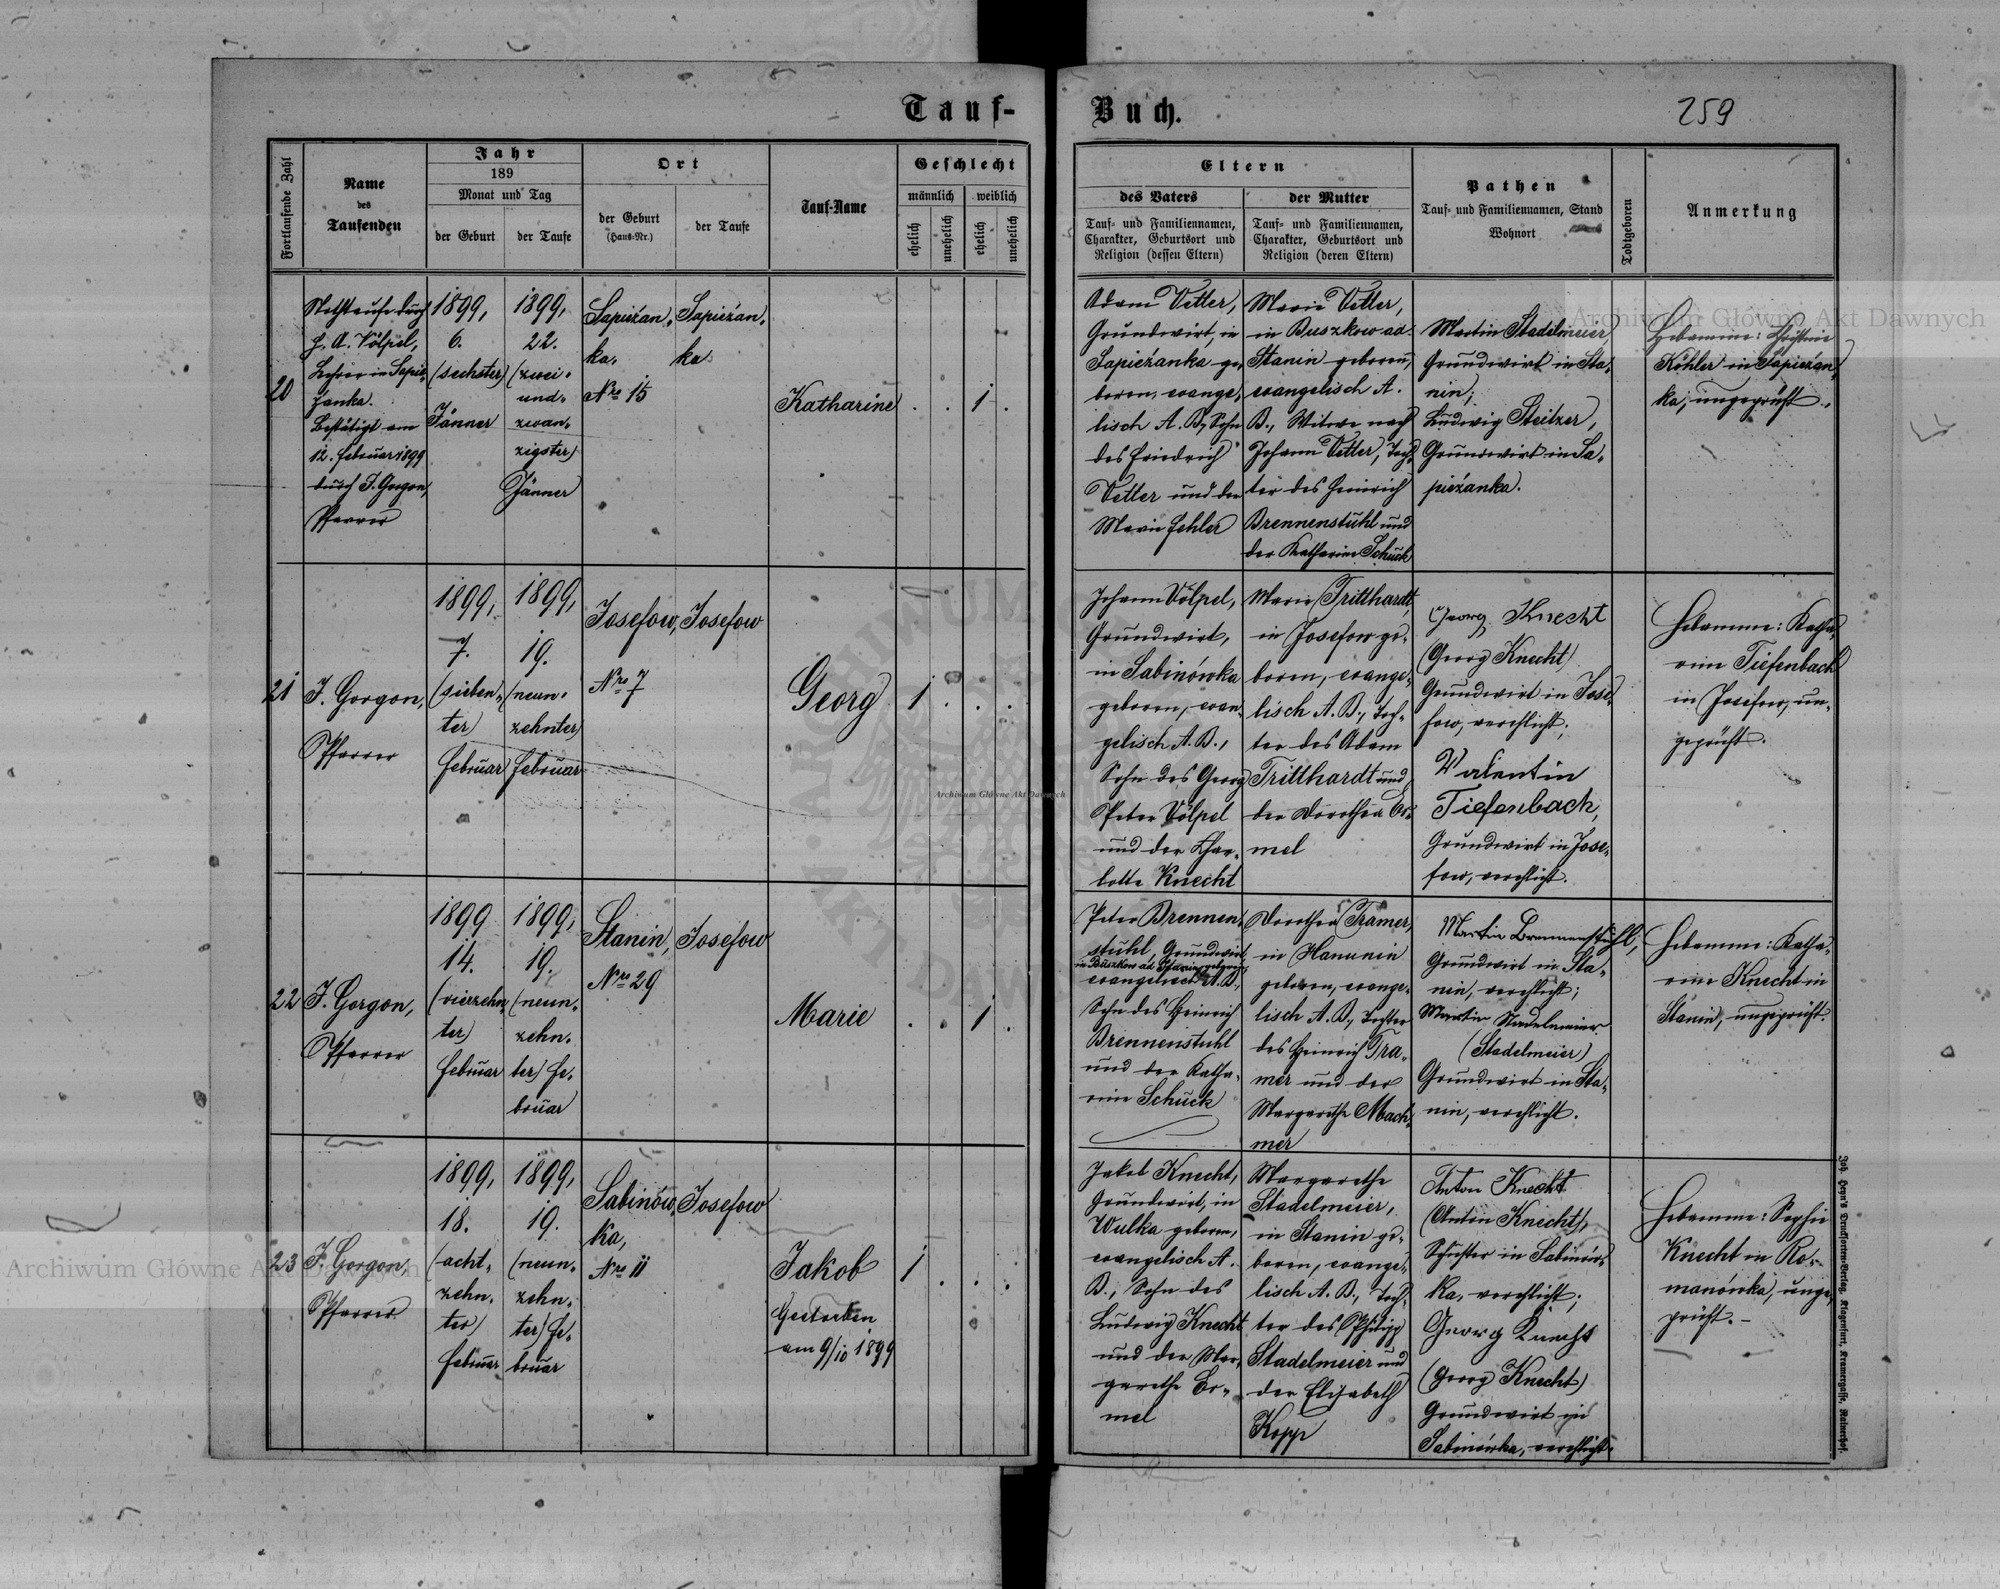 Tauf-
Buch.
259
Fortlaufende Zahl
Name
des
Taufenden
Jahr
189
Monat und Tag
der Geburt
der Taufe
Ort
der Geburt
(Haus-Nr.)
der Taufe
Tauf-Name
Geschlecht
männlich
weiblich
ehelich
unehelich
ehelich
unehelich
Eltern
des Vaters
Tauf- und Familiennamen,
Charakter, Geburtsort und
Religion (dessen Eltern)
der Mutter
Tauf- und Familiennamen,
Charakter, Geburtsort und
Religion (deren Eltern)
Pathen
Tauf- und Familiennamen, Stand
Wohnort
Todtgeboren
Anmerkung
20
Nothtaufe durch
H. A. Völpel,
Lehrer in Sapie-
żanka.
Bestätigt am
12. Februar 1899
durch J. Gorgon,
Pfarrer
1899,
6.
(sechster)
Jänner
1899,
22.
(zwei-
und-
zwan-
zigster)
Jänner
Sapieżan-
ka,
Nro 15
Sapieżan-
ka
Katharine
. . 1 .
Adam Vetter,
Grundwirt, in
Sapieżanka ge-
boren, evange-
lisch A. B., Sohn
des Friedrich
Vetter und der
Marie Fehler
Marie Vetter,
in Buszkow ad
Stanin geboren,
evangelisch A.
B., Witwe nach
Johann Vetter, Toch-
ter des Heinrich
Brennenstuhl und
der Katharine Schuck
Martin Stadelmeier,
Grundwirt in Sta-
nin;
Ludwig Steitzer,
Grundwirt in Sa-
pieżanka.
Hebamme: Christine
Köhler in Sapieżan-
ka, ungeprüft.
21
J. Gorgon,
Pfarrer
1899,
7.
(sieben-
ter)
Februar
1899,
19.
(neun-
zehnter)
Februar
Josefow,
Nro 7
Josefow
Georg
1 . . .
Johann Völpel,
Grundwirt,
in Sabinówka
geboren, evan-
gelisch A. B.,
Sohn des Georg
Peter Völpel
und der Char-
lotte Knecht
Marie Tritthardt
in Josefow ge-
boren, evange-
lisch A. B., Toch-
ter des Adam
Tritthardt und
der Dorothea Er-
mel
Georg Knecht
(Georg Knecht)
Grundwirt in Jose-
fow, verehlicht;
Valentin
Tiefenbach,
Grundwirt in Jose-
fow, verehlicht.
Hebamme: Katha-
rine Tiefenbach
in Josefow, un-
geprüft.
22
J. Gorgon,
Pfarrer
1899
14.
(vierzehn-
ter)
Februar
1899,
19.
(neun-
zehn-
ter) Fe-
bruar
Stanin,
Nro 29
Josefow
Marie
. . 1 .
Peter Brennen-
stuhl, Grundwirt
in Buszkow ad Stanin geboren,
evangelisch A. B.,
Sohn des Heinrich
Brennenstuhl
und der Katha-
rine Schuck
Dorothea Tramer,
in Hanunin
geboren, evange-
lisch A. B., Tochter
des Heinrich Tra-
mer und der
Margarethe Mach-
mer
Martin Brennenstuhl,
Grundwirt in Sta-
nin, verehlicht;
Martin Stadelmeier
(Stadelmeier)
Grundwirt in Sta-
nin, verehlicht.
Hebamme: Katha-
rine Knecht in
Stanin, ungeprüft.
23
J. Gorgon,
Pfarrer
1899,
18.
(acht-
zehn-
ter)
Februar
1899,
19.
(neun-
zehn-
ter) Fe-
bruar
Sabinów-
ka,
Nro 11
Josefow
Jakob
Gestorben
am 9/10 1899
1 . . .
Jakob Knecht,
Grundwirt, in
Wulka geboren,
evangelisch A.
B., Sohn des
Ludwig Knecht
und der Mar-
garethe Er-
mel
Margarethe
Stadelmeier,
in Stanin ge-
boren, evange-
lisch A. B., Toch-
ter des Philipp
Stadelmeier und
der Elisabeth
Kopp
Anton Knecht
(Anton Knecht),
Schuster in Sabinów-
ka, verehlicht;
Georg Knecht
(Georg Knecht)
Grundwirt in
Sabinówka, verehlicht.
Hebamme: Sophie
Knecht in Ro-
manówka, unge-
prüft.-
Joh. Heyn's Drucksorten-Verlag, Klagenfurt, Kramergasse, Rainerhof.
Archiwum Główne Akt Dawnych
Archiwum Główne Akt Dawnych
Archiwum Główne Akt Dawnych